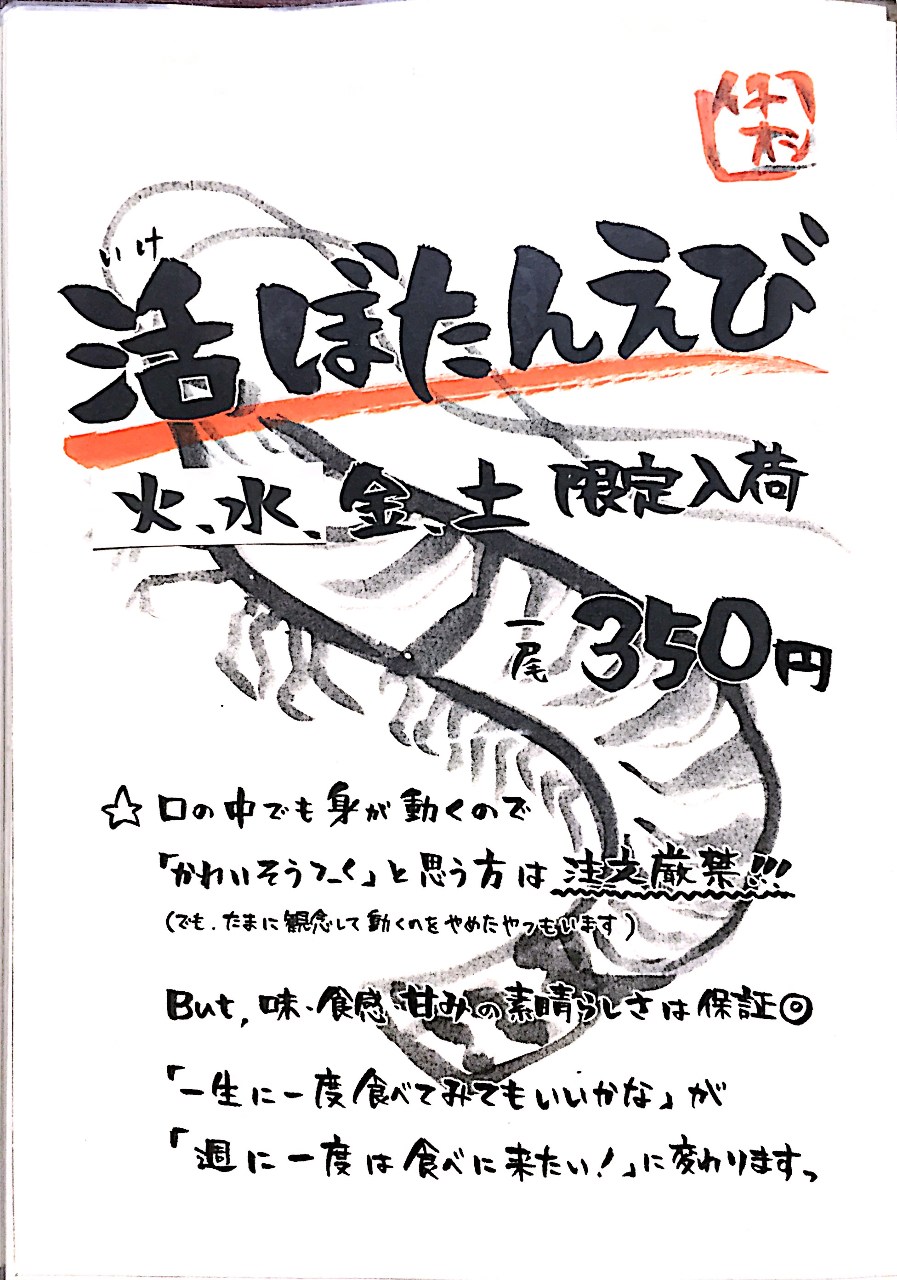 イチ
オシ
いけ
活ぼたんえび
火、水、金、土 限定入荷
一尾 350円
☆口の中でも身が動くので
「かわいそう〜く」と思う方は注文厳禁!!!
(でも、たまに観念して動くのをやめたやつもいます)
But, 味・食感 甘みの素晴らしさは保証◎
「一生に一度食べてみてもいいかな」が
「週に一度は食べに来たい!」に変わります。